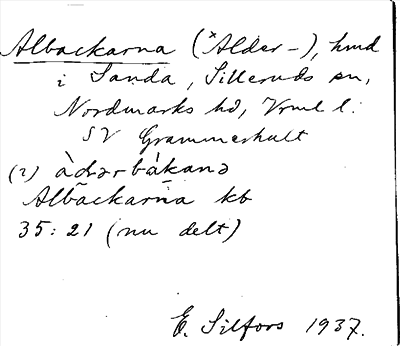 Albackarna (*Alder-), hmd
i Sanda, Silleruds sn,
Nordmarks hd, Vrml l.
SV Grammerhult
(2) àdərbákanə
Albäckarna kb
35:21 (nu delt)
E. Silfors 1937.